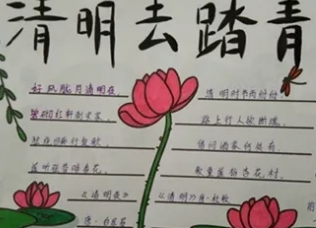 清明去踏青
好风胧月清明夜，
碧砌红轩刺史家。
独绕回廊行复歇，
遥听弦管暗看花。
《清明夜》
唐·白居易
清明时节雨纷纷
路上行人欲断魂。
借问酒家何处有，
牧童遥指杏花村。
《清明》唐·杜牧